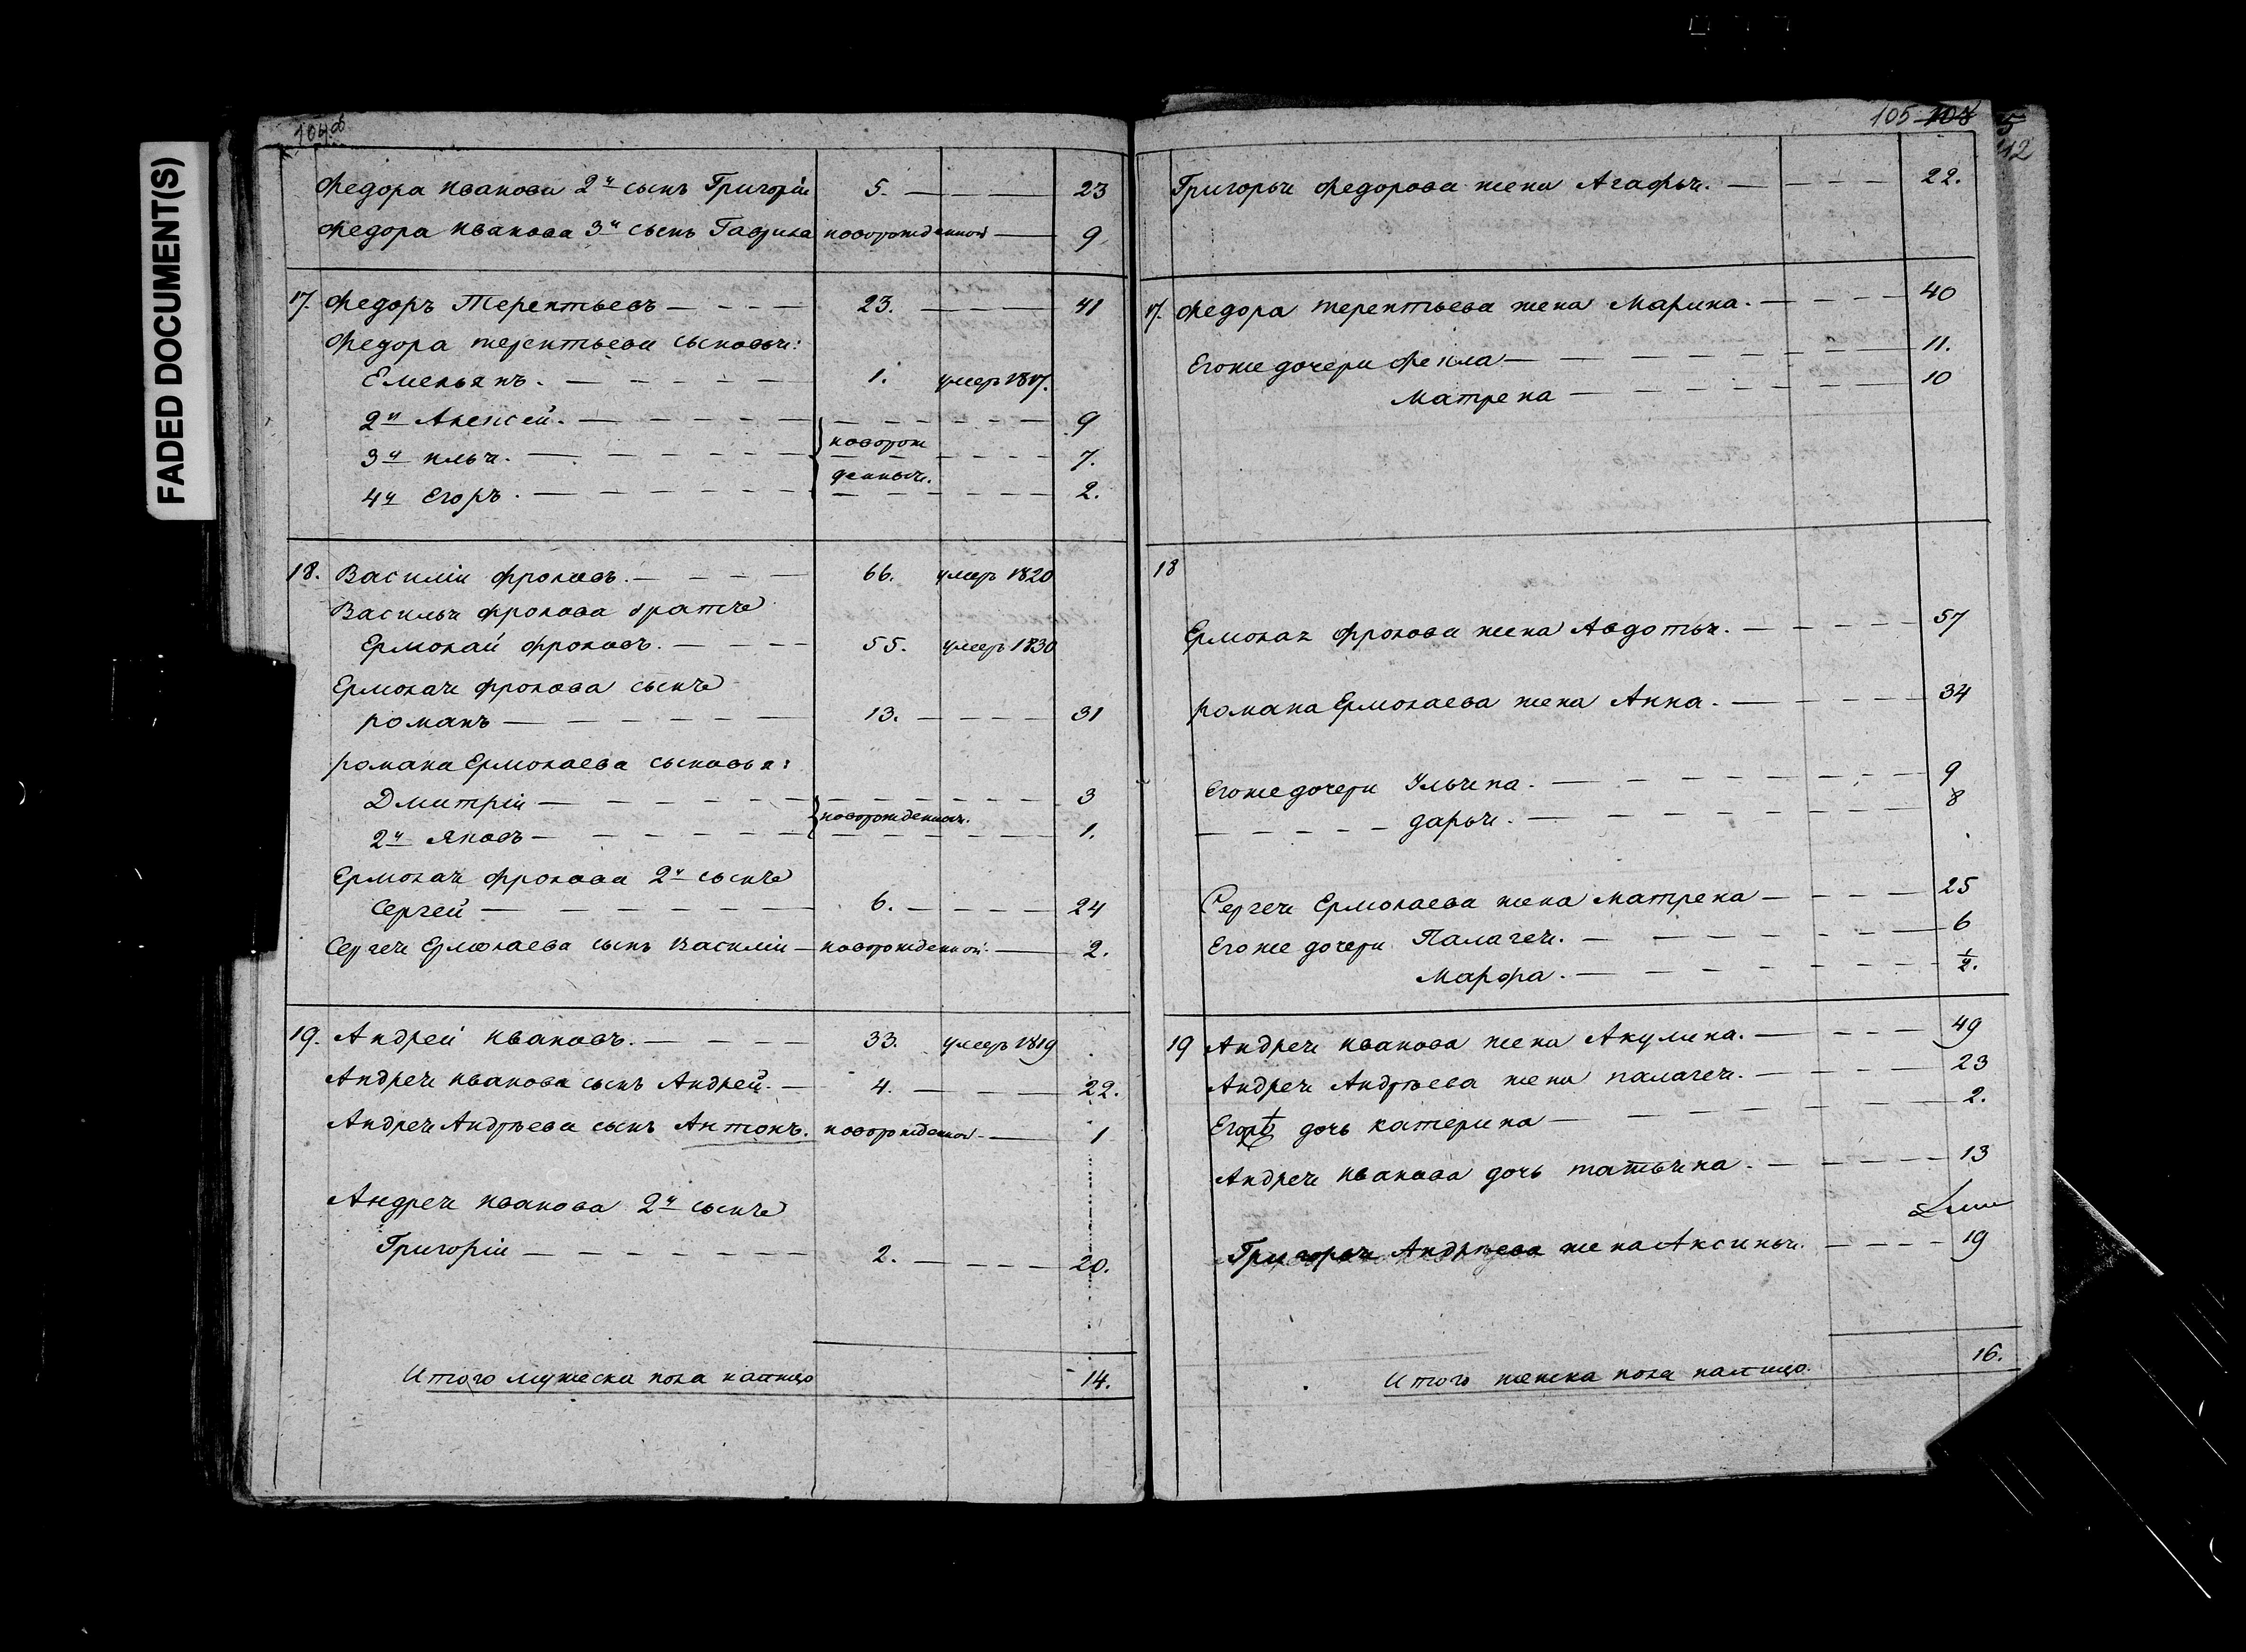 FADED DOCUMENT(S)
104об
Федора Иванова 2й сынъ Григорiй 5. — — — 23
Федора Иванова 3й сынъ Гаврила новорожденной — 9
17. Федоръ Терентьевъ — — — 23. — — — 41
Федора терентьева сыновья:
Емельянъ. — — — 1. умеръ 1817.
2й Алексей. — — — 9
3й илья. — — — новорож 7.
4й Егоръ. — — — денныя. 2.
18. Василiй фроловъ. — — — 66. умеръ 1820
Василья фролова братъ
Ермолай фроловъ. — — — 55. умеръ 1830
Ермолая фролова сынъ
романъ — — — 13. — — — 31
романа Ермолаева сыновья:
Дмитрiй — — — 3
новорожденныя.
2й Яковъ — — — 1.
Ермолая фролова 2й сынъ
Сергей — — — 6. — — — 24
Сергея Ермолаева сынъ Василiй — новорожденной — 2.
19. Андрей Ивановъ. — — — 33. умеръ 1819
Андрея Иванова сынъ Андрей. — 4. — — — 22.
Андрея Андрѣева сынъ Антонъ. новорожденной. — 1
Андрея Иванова 2й сынъ
Григорiй — — — 2. — — — 20.
Итого мужеска пола налицо 14.
105 108
5
112
Григорья Федорова жена Агафья. — — — 22.
17. Федора терентьева жена Марина. — — — 40
Егоже дочери Фекла — — — 11.
Матрена — — — 10
18
Ермолая фролова жена Авдотья. — — — 57
романа Ермолаева жена Анна. — — — 34
Егоже дочери Ульяна. — — — 9
— — — дарья. — — — 8
Сергея Ермолаева жена матрена — — — 25
Егоже дочери Палагея. — — — 6
Марфа. — — — 1/2.
19 Андрея Иванова жена Акулина. — — — 49
Андрея Андрѣева жена палагея. — — — 23
дочь катерина — — — 2.
Андрея Иванова дочь татьяна. — — — 13
Григорья Андрѣева жена Аксинья. — — — 19
Итого женска пола налицо. 16.